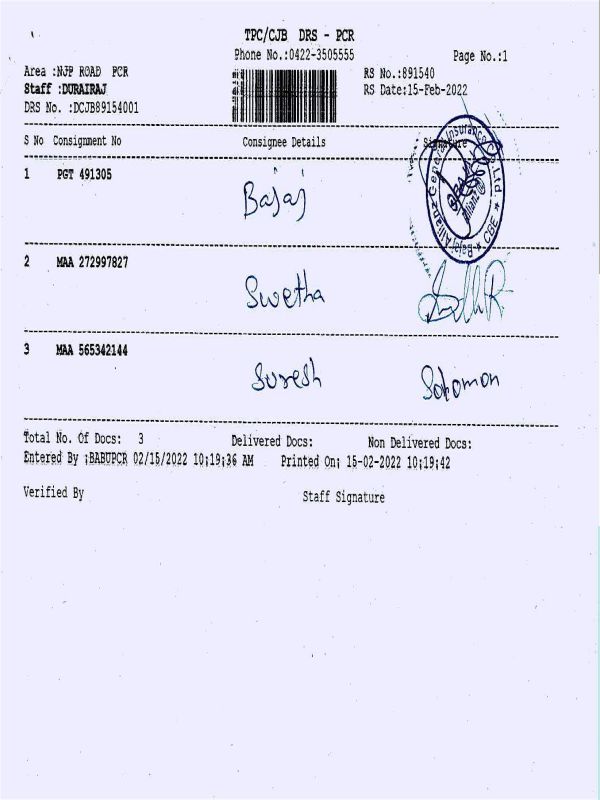 TPC/CJB DRS - PCR
Phone No.:0422-3505555
Page No.:1
Area :NJP ROAD PCR
RS No.:891540
Staff :DURAIRAJ
RS Date:15-Feb-2022
DRS No. :DCJB89154001
S No Consignment No Consignee Details Signature
1 PGT 491305 Bajaj
Bajaj Allianz General Insurance Co. Ltd. ★ CBE ★
2 MAA 272997827 Swetha
3 MAA 565342144 Suresh Solomon
Total No. Of Docs: 3 Delivered Docs: Non Delivered Docs:
Entered By ;BABUPCR 02/15/2022 10;19;36 AM Printed On; 15-02-2022 10;19;42
Verified By Staff Signature